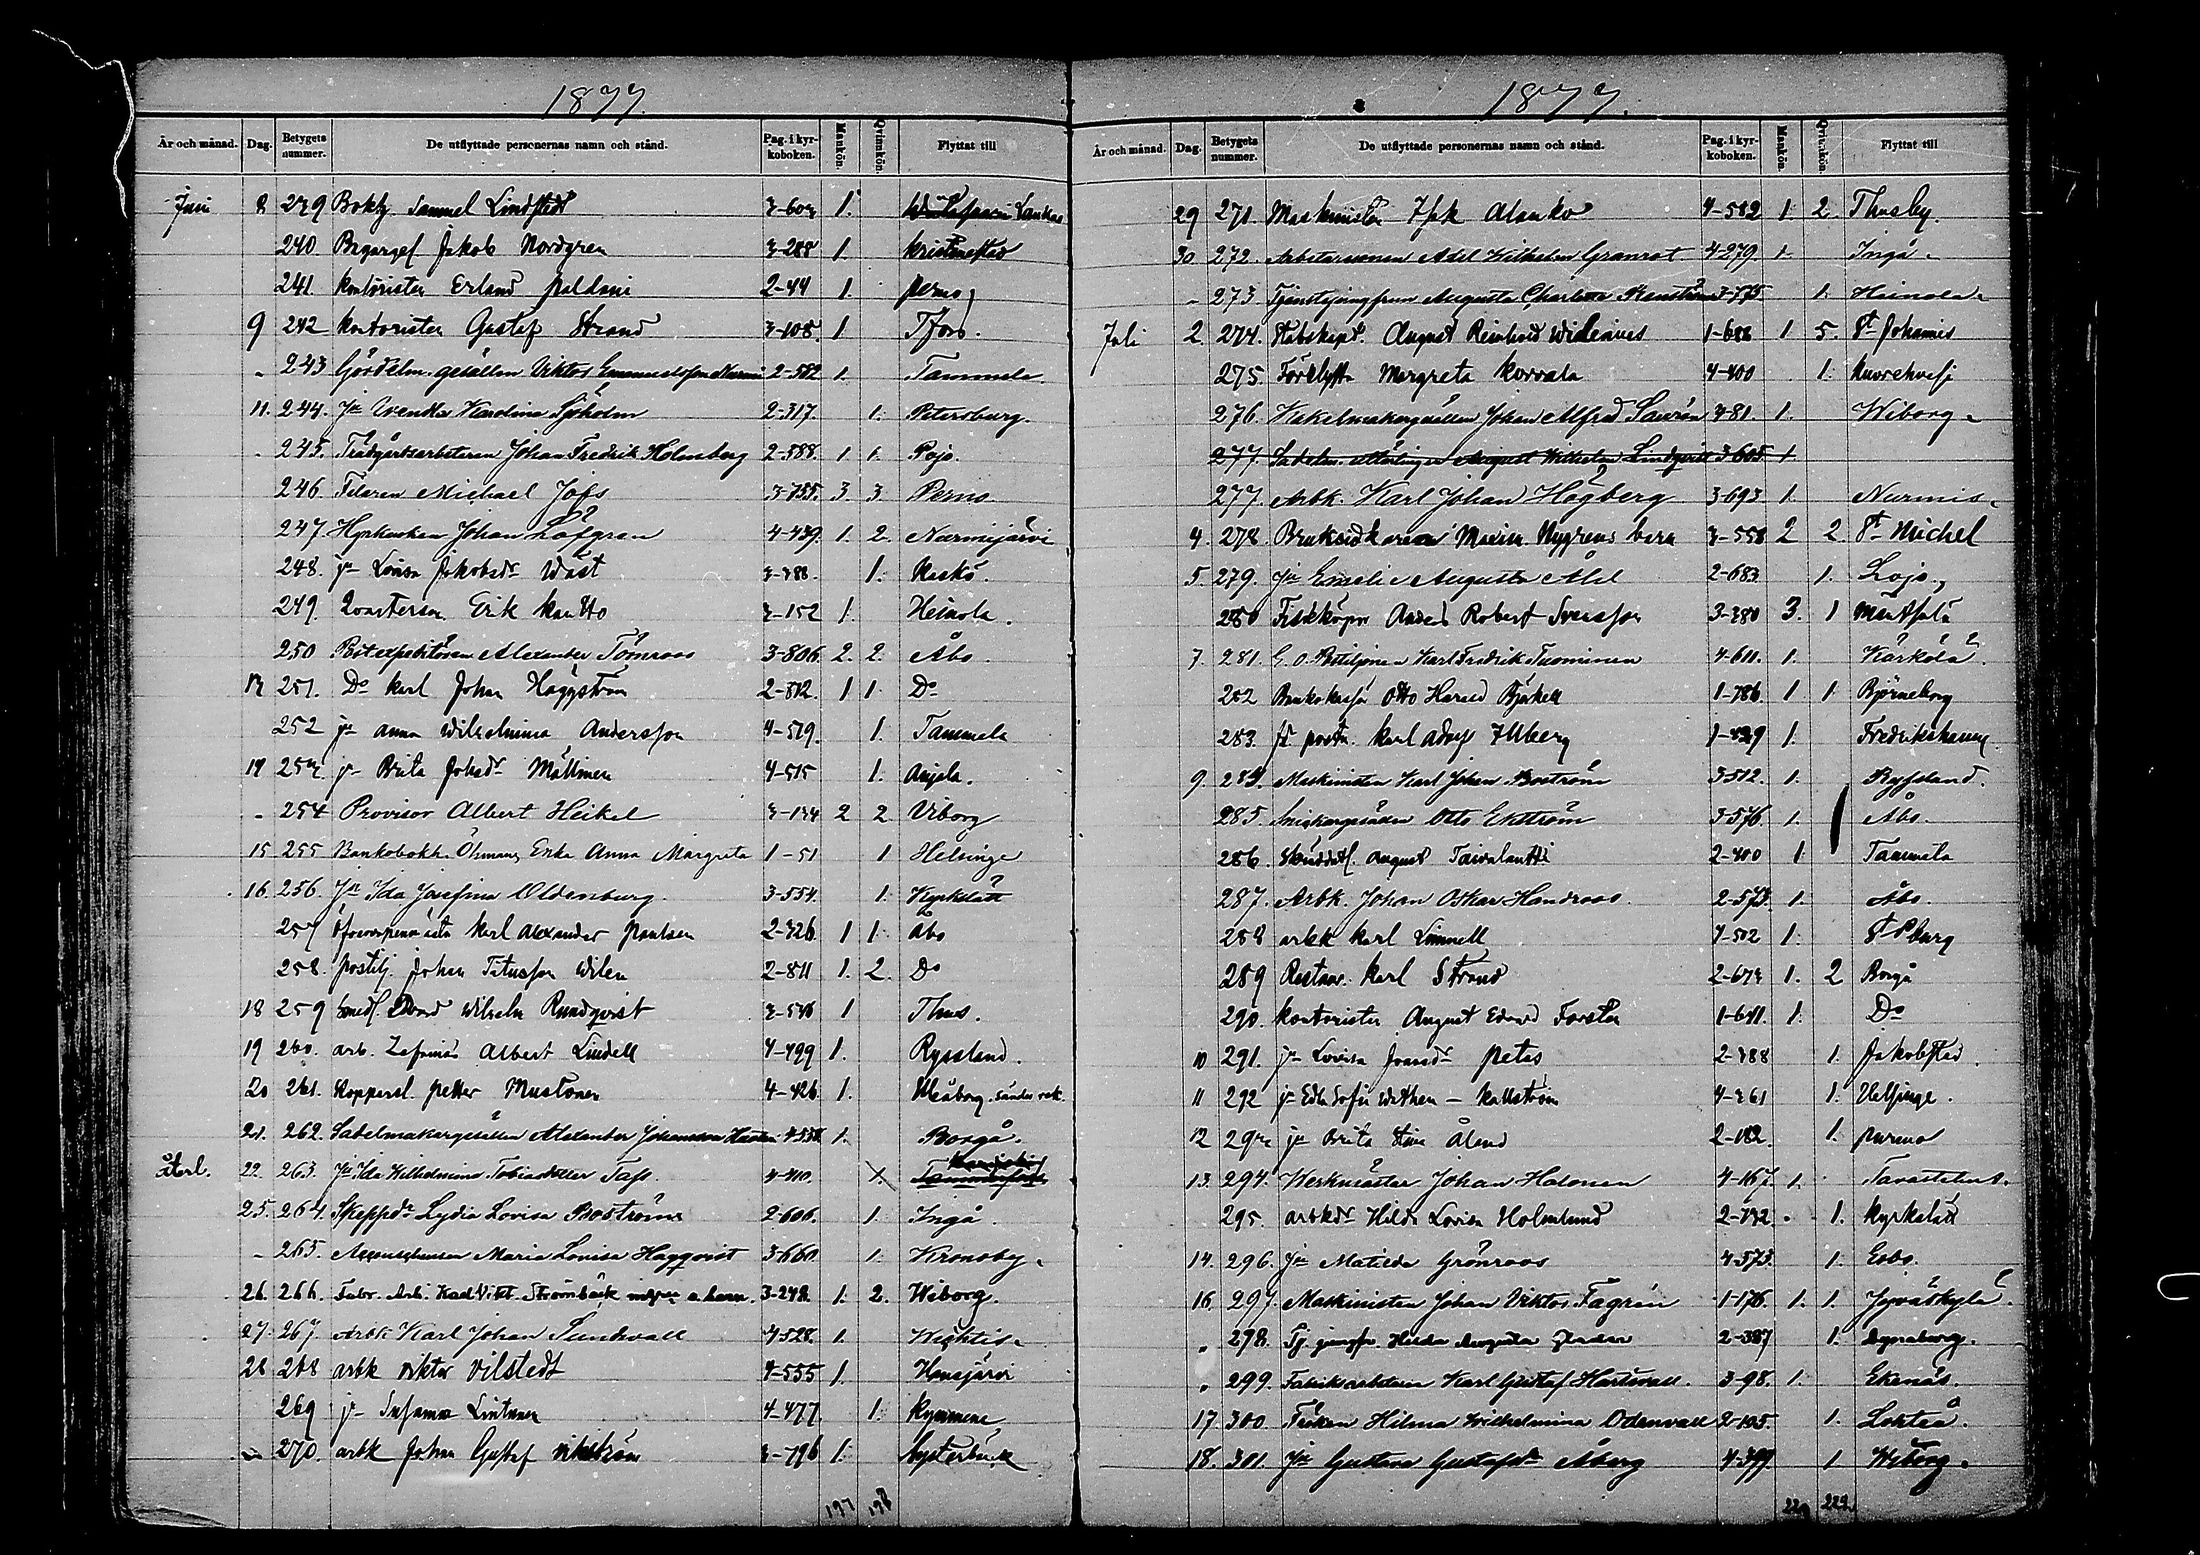 1877.
År och månad. Dag. Betygets nummer. De utflyttade personernas namn och stånd. Pag. i kyrkoboken. Mankön. Qvinnkön. Flyttat till
Juni 8 239 Bokh. Samuel Lindstedt 3-603 1.
240. Jakob Nordgren 3-288 1. Kristinestad
241. Kontoristen Erland Paldani 2-44 1. Perno
9 242 Kontoristen Gustaf Strand 3-108. 1. Tfors.
" 243 gesällen Viktor 2-582 1. Tammela.
11. 244. Jn Karolina Sjöholm 2-317. 1. Petersburg.
" 245. Trädgårdsarbetaren Johan Fredrik Holmberg 2-588. 1 1. Pojo.
246 Filaren Michael 3-755. 3 3 Perno
247. Hyrkusken Johan Löfgren 4-439. 1. 2. Nurmijärvi
248. jn Lovisa Jakobsdr Wäst 3-388. 1. Kaskö.
249. Erik 3-152 1. Heinola.
250 Postexpeditören Alexander Törnroos 3-806. 2. 2. Åbo.
13 251. Do Karl Johan Häggström 2-812. 1 1. Do
252 jn Anna Wilhelmina Andersson 4-519. 1. Tammela
14 253 jn Brita Johsdr Mällinen 4-515 1. Anjala.
" 254 Provisor Albert Heikel 3-134 2 2 Viborg
15 255 Bankobokh. Öhmans Enka Anna Margreta 1-51 1 Helsinge
16 256. Jn Ida Josefina Oldenburg. 3-554. 1. Kyrkslätt
257 Karl Alexander Paulsen 2-326. 1 1. Åbo
258. postilj. Johan Titusson Wilen 2-811 1. 2. Do
18 259 Smedl. Edvard Wilhelm Rundqvist 3-536 1 Thus.
19 260. arb. Zefanias Albert Lindell 4-499 1. Ryssland.
20 261. Kopparsl. Petter Mustonen 4-426 1. Uleåborg.
21. 262. Sadelmakargesällen Alexander Johansson 4-538. 1. Borgå.
återl. 22. 263. Jn Ida Wilhelmina Tobiasdotter 4-410. 1.
25. 264. Skeppdr Lydia Lovisa Boström 2-606. 1. Ingå.
" 265. Maria Lovisa Haggqvist 3-660. 1. Kronoby.
26. 266. Fabr. Arb. Karl Strömbäck 3-248. 1. 2. Wiborg.
27. 267. Arbk Karl Johan Sundvall 4-528. 1. Wichtis.
28 268 arbk Viktor Vilstedt 4-555 1. Hausjärvi
269 jn Susanna 4-477 1. Kymmene
270. arbk Johan Gustaf Wikström 3-796 1. Systerbäck
197 198
1877.
År och månad. Dag. Betygets nummer. De utflyttade personernas namn och stånd. Pag. i kyrkoboken. Mankön. Qvinnkön. Flyttat till
29 271. Maskinisten Isak Alanko 4-582 1. 2. Thusby.
30. 272. Adel Wilhelm Granrot 4-279. 1. Ingå.
" 273 Tjenstejungfrun Augusta Charlotta 3-775 1. Heinola.
Juli 2. 274. Stabskapt. August Reinhold Widenius 1-688 1 5. St Johannis
275. Margreta Korvala 4-400 1.
276. Kakelmakargesällen Johan Alfred 4-81. 1. Wiborg.
277. Sadelm. August Wilhelm Lindqvist 3-605 1
277. Arbk. Karl Johan Högberg 3-693 1. Nurmis.
4. 278. Nygrens barn 3-558 2 2. St Michel
5. 279. Jn Emelie Augusta Ald 2-683 1. Lojo.
280 Anders Robert Svensson 3-380 3. 1 Mäntsälä
7. 281. E. o. Postiljonen Karl Fredrik Tuominen 4-611. 1. Kärkölä.
282 Otto Harald Björkell 1-786 1 1. Björneborg
283. Karl Adolf 1-439 1. Fredrikshamn
9. 284. Maskinisten Karl Johan Boström 3-512. 1. Ryssland.
285. Snickargesällen Otto Ekström 3-576. 1. Åbo.
286. August Taivalantti 2-400 1 Tammela
287. Arbk. Johan Oskar Handroos. 2-573. 1. Åbo.
288 arbk Karl Limnell 4-502 1. St Pburg
289 Restaur. Karl Strand 2-673 1. 2 Borgå
290. Kontoristen August Edvard Forstén 1-641. 1. Do
10 291. jn Lovisa 2-388 1. Jakobstad.
11 292 jn Edla Sofia Källström 4-361 1. Helsinge.
12 293 jn Brita Stina Ålund 2-182 1. Purmo
13. 294. Werkmästar Johan Halonen 4-167. 1. Tavastehus.
295. arbkdr Hilda Lovisa Holmlund 2-732 1. Kyrkslätt
14. 296. Jn Matilda Grönroos 4-573. 1. Esbo.
16. 297. Maskinisten Johan Viktor Fagrén 1-176. 1. 1. Jyväskylä.
" 298. Tj. jungfr. Hilda Augusta 2-387 1.
" 299. Fabriksarbetaren Karl Gustaf Hartvall. 3-98. 1. Ekenäs.
17. 300 Fröken Hilma Wilhelmina Odenvall 2-105. 1. Lohteå.
18. 301. Jn Gustava Gustafsdr Åberg 4-399. 1. Wiborg.
220 222